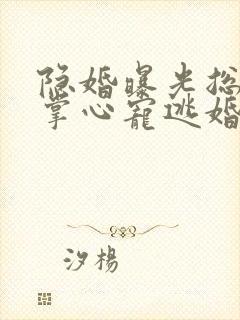 隐婚曝光总
掌心宠逃婚
汐杨